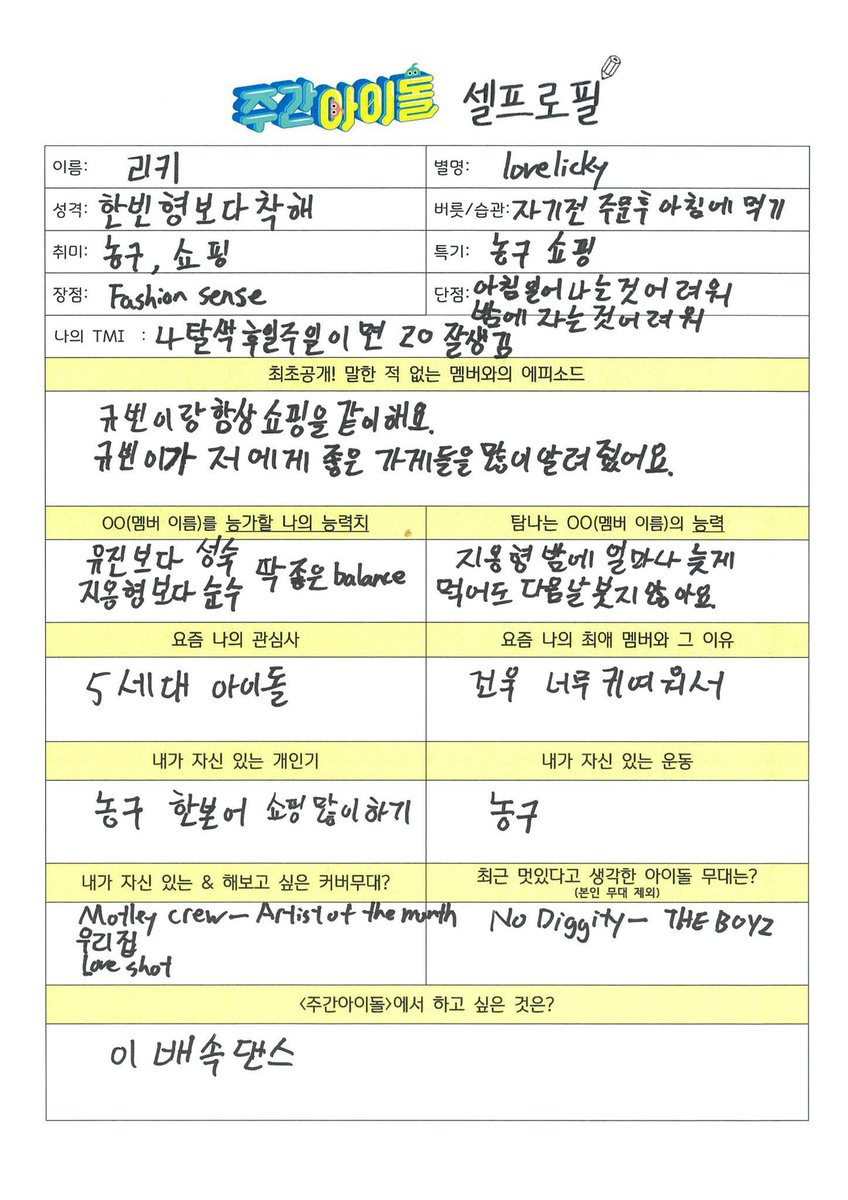 주간아이돌 셀프로필
이름: 리키
별명: lovelicky
성격: 한빈형보다 착해
버릇/습관: 자기전 주문후 아침에 먹기
취미: 농구, 쇼핑
특기: 농구 쇼핑
장점: Fashion sense
단점: 아침 일어나는것 어려워
밤에 자는것 어려워
나의 TMI : 4 탈색 후 일주일이면 20 잘생김
최초공개! 말한 적 없는 멤버와의 에피소드
규빈이랑 항상 쇼핑을 같이해요.
규빈이가 저에게 좋은 가게들을 많이 알려 줬어요.
OO(멤버 이름)를 능가할 나의 능력치
유진보다 성숙
지웅형보다 순수 딱 좋은 balance
탐나는 OO(멤버 이름)의 능력
지웅형 밤에 얼마나 늦게
먹어도 다음날 붓지 않아요.
요즘 나의 관심사
5세대 아이돌
요즘 나의 최애 멤버와 그 이유
건욱 너무 귀여워서
내가 자신 있는 개인기
농구 한본어 쇼핑 많이 하기
내가 자신 있는 운동
농구
내가 자신 있는 & 해보고 싶은 커버무대?
Motley crew - Artist of the month
우리집
Love shot
최근 멋있다고 생각한 아이돌 무대는?
(본인 무대 제외)
No Diggity - THE BOYZ
<주간아이돌>에서 하고 싶은 것은?
이 배속 댄스